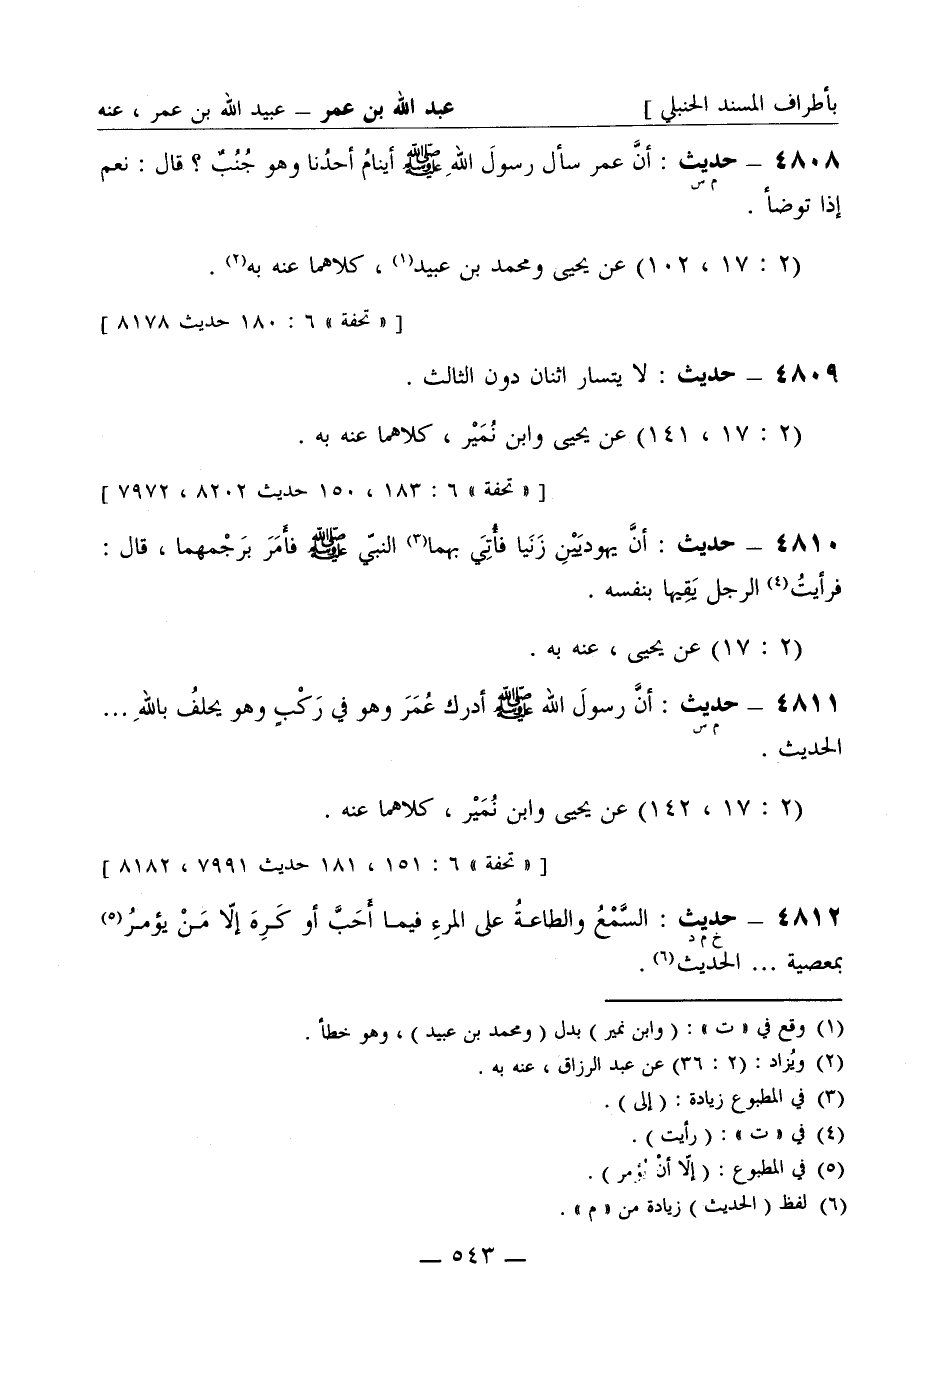 بأطراف المسند الحنبلي ] عبد الله بن عمر ــ عبيد الله بن عمر ، عنه
٤٨٠٨ ــ حديث : أنَّ عمر سأل رسولَ اللهِ ﷺ أينامُ أحدُنا وهو جُنُبٌ ؟ قال : نعم
م س
إذا توضأ .
(٢ : ١٧ ، ١٠٢) عن يحيى ومحمد بن عبيد(١) ، كلاهما عنه به(٢) .
[ « تحفة » ٦ : ١٨٠ حديث ٨١٧٨ ]
٤٨٠٩ ــ حديث : لا يتسار اثنان دون الثالث .
(٢ : ١٧ ، ١٤١) عن يحيى وابن نُمَيْر ، كلاهما عنه به .
[ « تحفة » ٦ : ١٨٣ ، ١٥٠ حديث ٨٢٠٢ ، ٧٩٧٢ ]
٤٨١٠ ــ حديث : أنَّ يهوديَيْنِ زَنَيا فأُتِيَ بهما(٣) النبيّ ﷺ فأَمَرَ بَرَجْمهما ، قال :
فرأيتُ(٤) الرجل يَقِيها بنفسه .
(٢ : ١٧) عن يحيى ، عنه به .
٤٨١١ ــ حديث : أنَّ رسولَ الله ﷺ أدرك عُمَرَ وهو في رَكْبٍ وهو يحلفُ باللهِ ...
م س
الحديث .
(٢ : ١٧ ، ١٤٢) عن يحيى وابن نُمَيْر ، كلاهما عنه .
[ « تحفة » ٦ : ١٥١ ، ١٨١ حديث ٧٩٩١ ، ٨١٨٢ ]
٤٨١٢ ــ حديث : السَّمْعُ والطاعةُ على المرءِ فيما أَحَبَّ أو كَرِهَ إلّا مَنْ يؤمرُ(٥)
خ م د
بمعصية ... الحديث(٦) .
(١) وقع في « ت » : ( وابن نمير ) بدل ( ومحمد بن عبيد ) ، وهو خطأ .
(٢) ويُزاد : (٢ : ٣٦) عن عبد الرزاق ، عنه به .
(٣) في المطبوع زيادة : ( إلى ) .
(٤) في « ت » : ( رأيت ) .
(٥) في المطبوع : ( إلّا أنْ يُؤمر ) .
(٦) لفظ ( الحديث ) زيادة من « م » .
ــ ٥٤٣ ــ